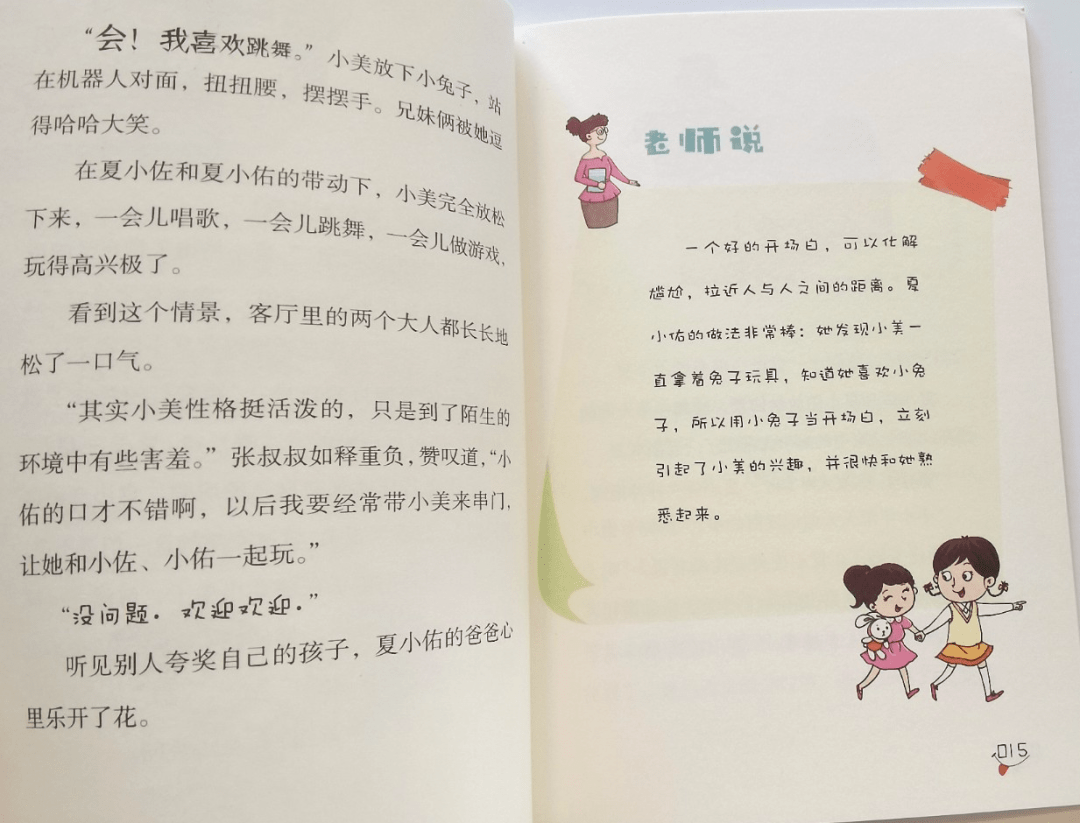 “会！我喜欢跳舞。”小美放下小兔子，站
在机器人对面，扭扭腰，摆摆手。兄妹俩被她逗
得哈哈大笑。
在夏小佐和夏小佑的带动下，小美完全放松
下来，一会儿唱歌，一会儿跳舞，一会儿做游戏，
玩得高兴极了。
看到这个情景，客厅里的两个大人都长长地
松了一口气。
“其实小美性格挺活泼的，只是到了陌生的
环境中有些害羞。”张叔叔如释重负，赞叹道，“小
佑的口才不错啊，以后我要经常带小美来串门，
让她和小佐、小佑一起玩。”
“没问题。欢迎欢迎。”
听见别人夸奖自己的孩子，夏小佑的爸爸心
里乐开了花。
老师说
一个好的开场白，可以化解
尴尬，拉近人与人之间的距离。夏
小佑的做法非常棒：她发现小美一
直拿着兔子玩具，知道她喜欢小兔
子，所以用小兔子当开场白，立刻
引起了小美的兴趣，并很快和她熟
悉起来。
015